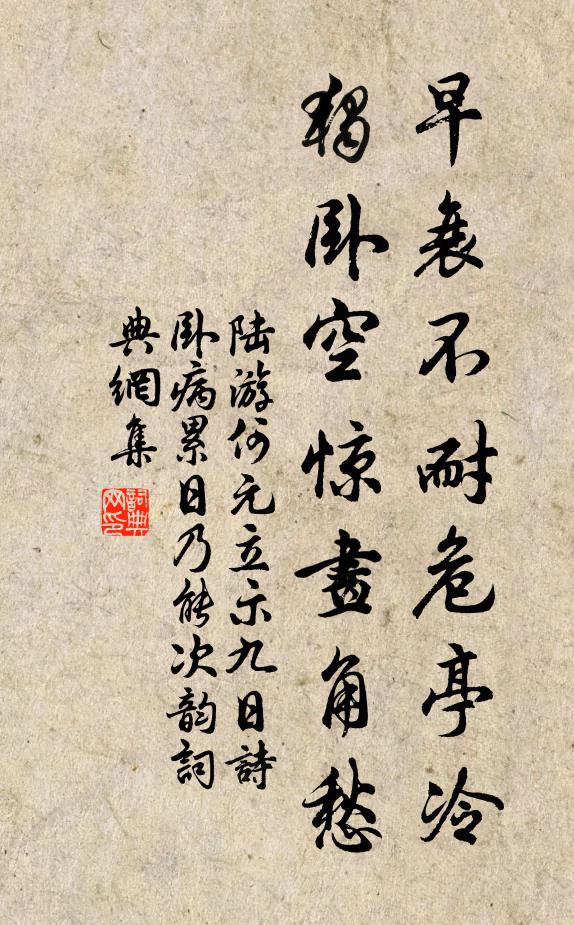 早衰不耐危亭冷
獨卧空惊畫角愁
陆游何元立示九日詩
卧病累日乃能次韵詞
典網集
詞典
网印